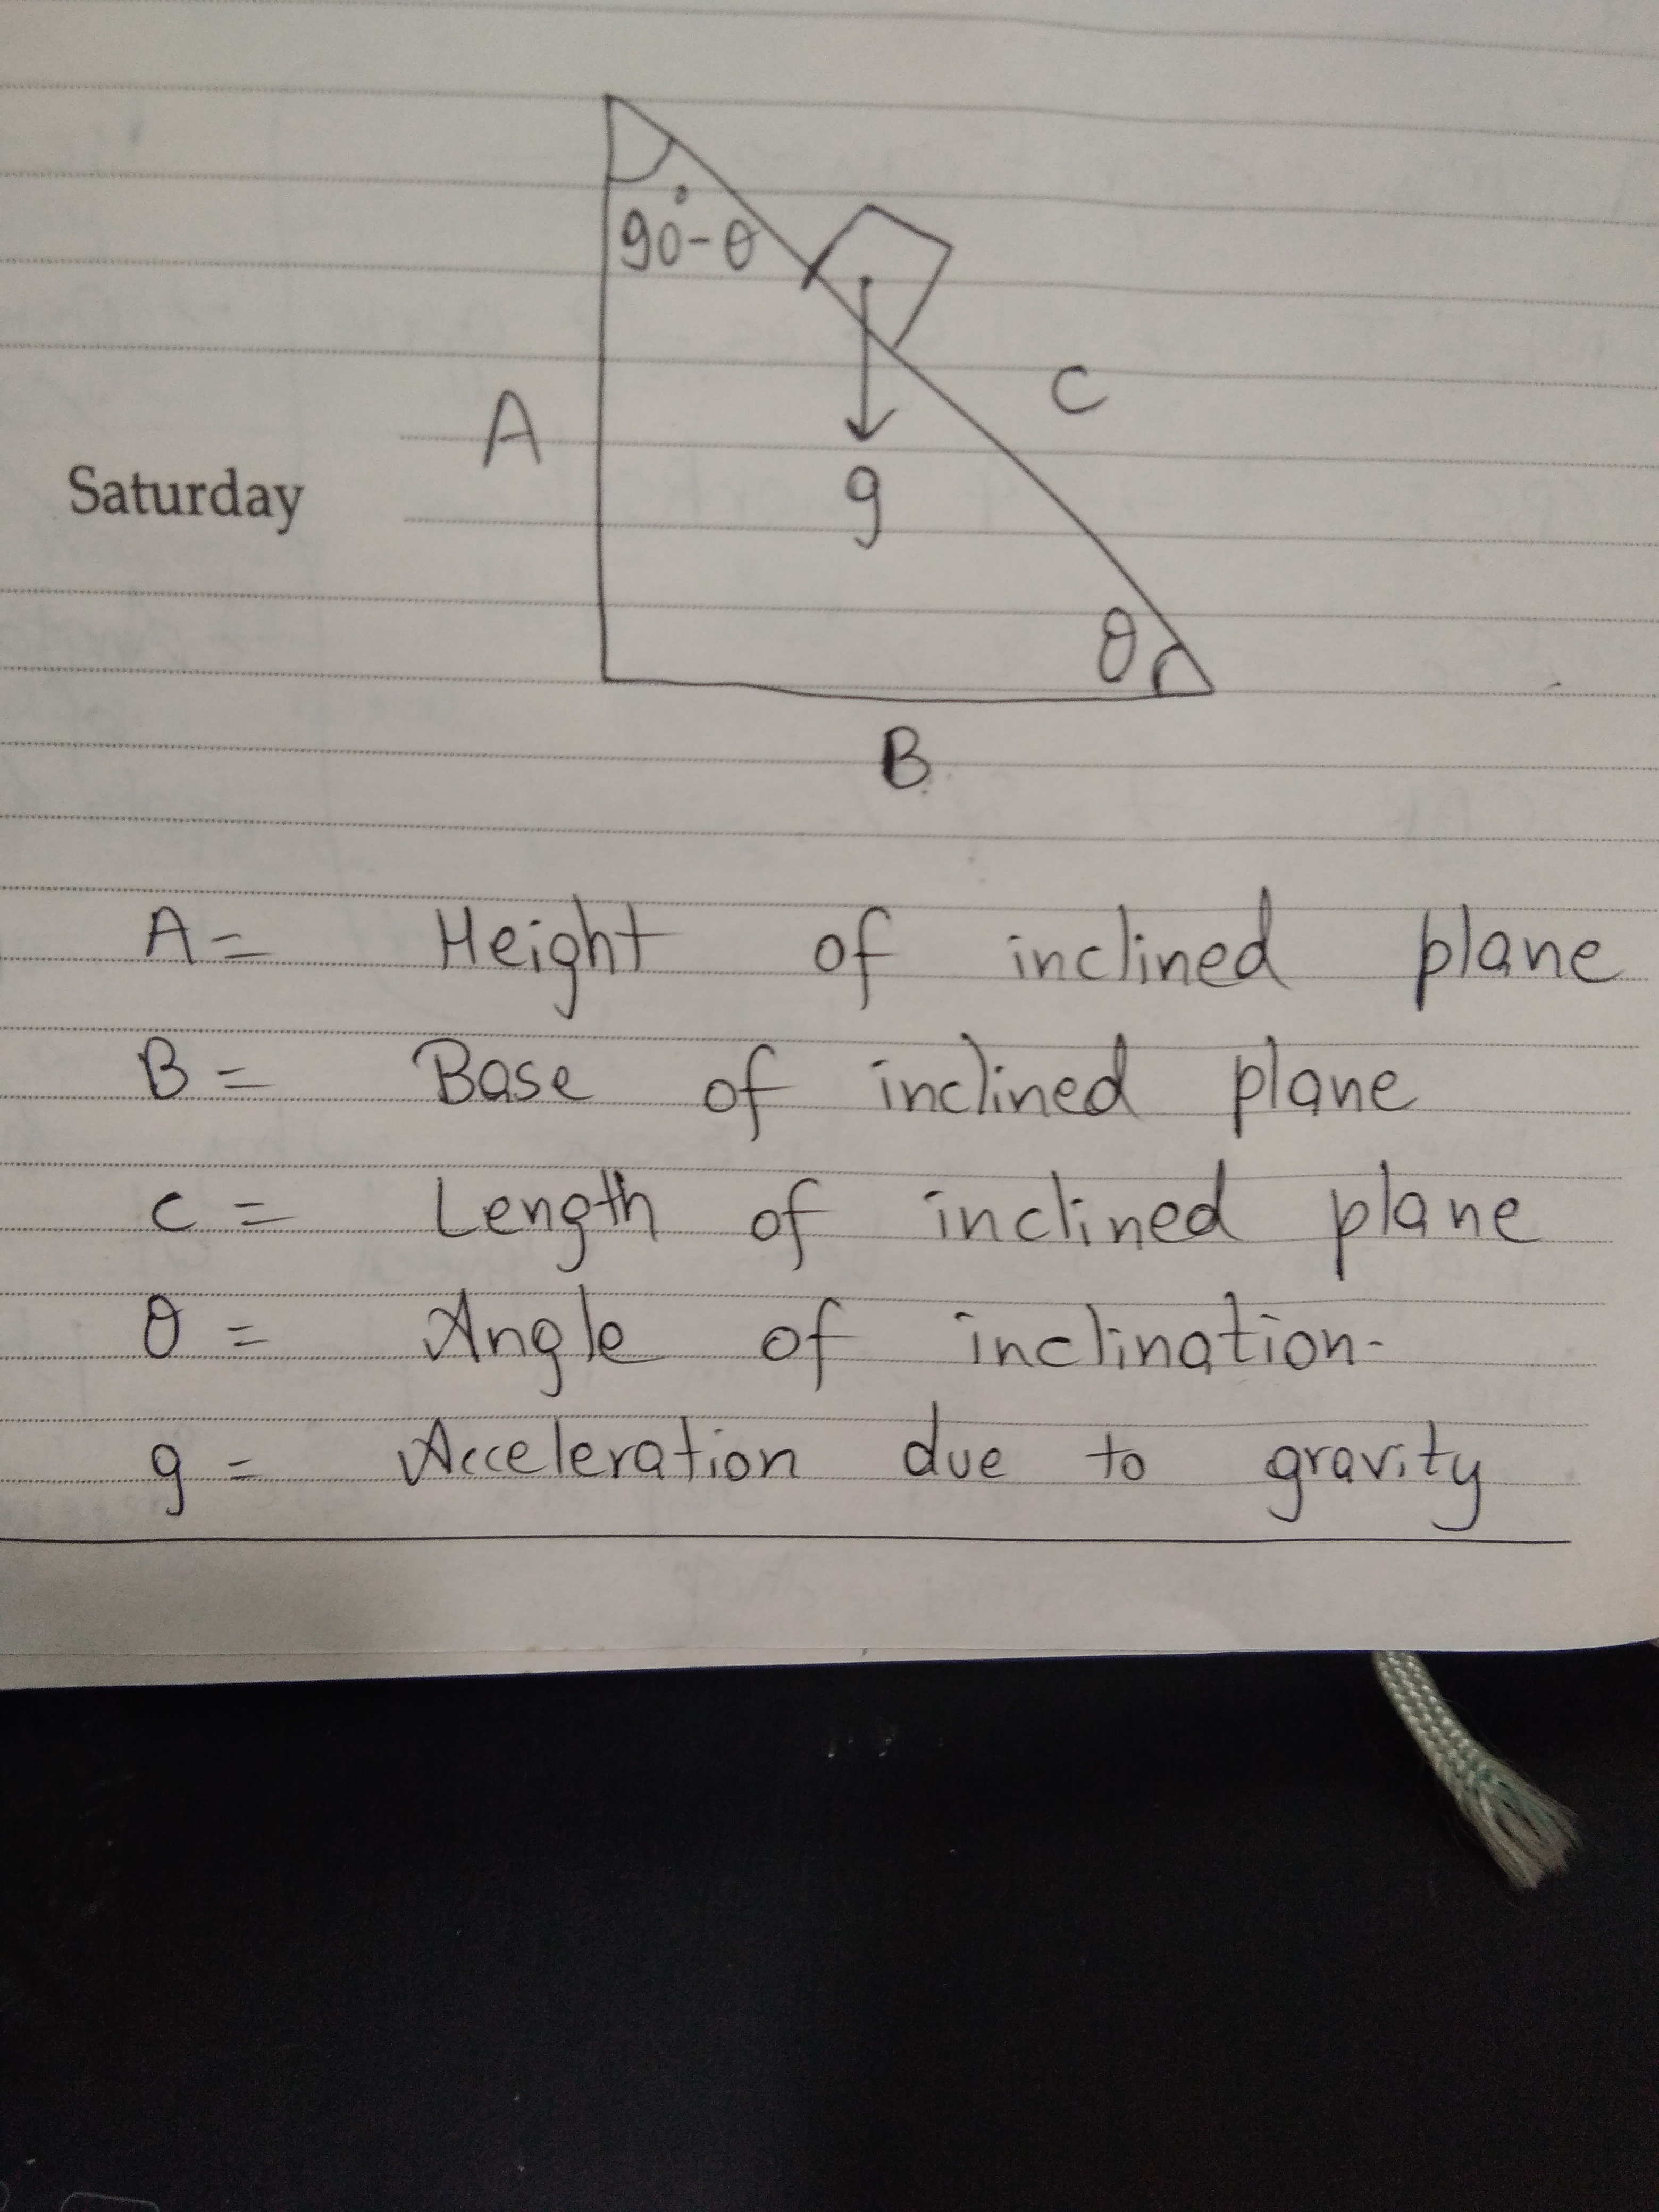 90°-θ
A
C
g
Saturday
θ
B
A = Height of inclined plane
B = Base of inclined plane
C = Length of inclined plane
θ = Angle of inclination-
g = Acceleration due to gravity